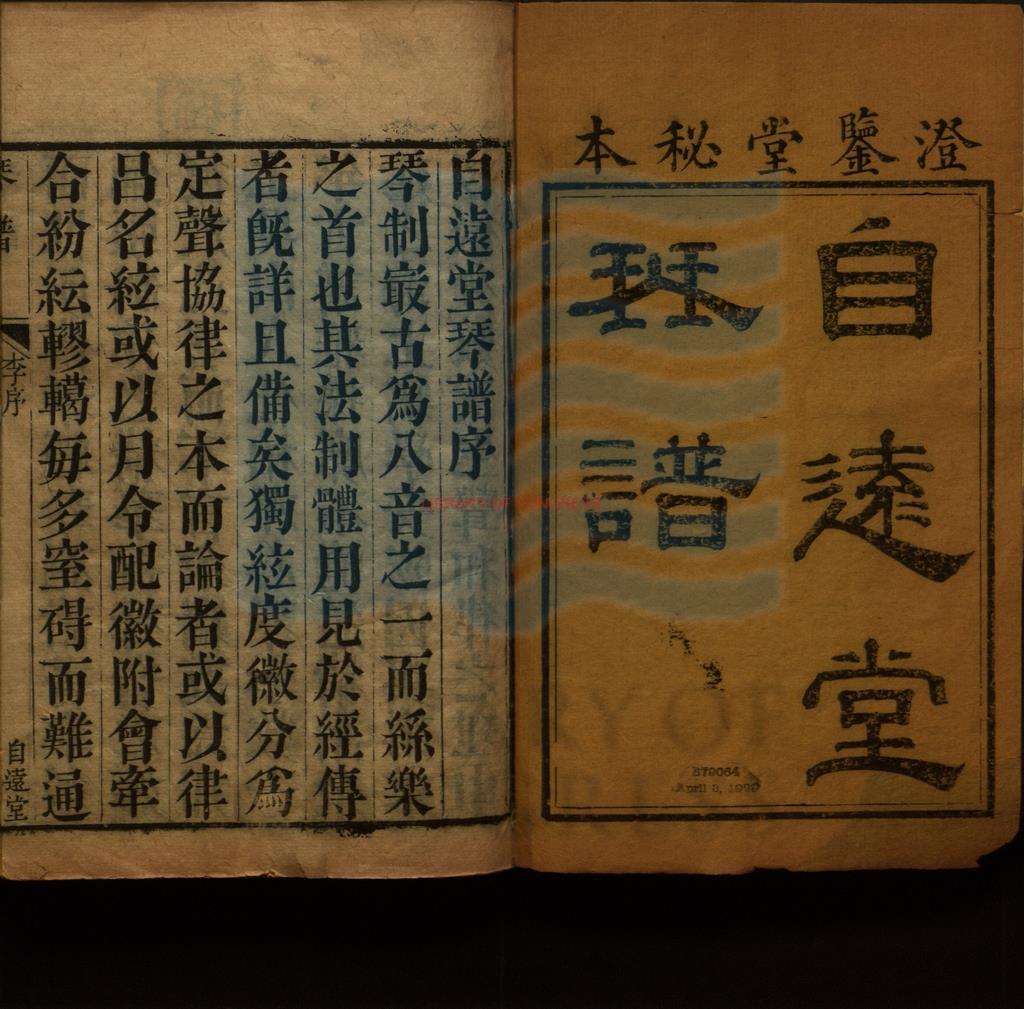 澄鑒堂秘本
自遠堂
琹譜
自遠堂琴譜序
琴制㝡古為八音之一而絲樂
之首也其法制體用見於經傳
者旣詳且備矣獨絃度徽分為
定聲協律之本而論者或以律
呂名絃或以月令配徽附會牽
合紛紜轇轕毎多窒碍而難通
譜
李序
自遠堂
LIBRARY OF CONGRESS
879064
April 3, 1929